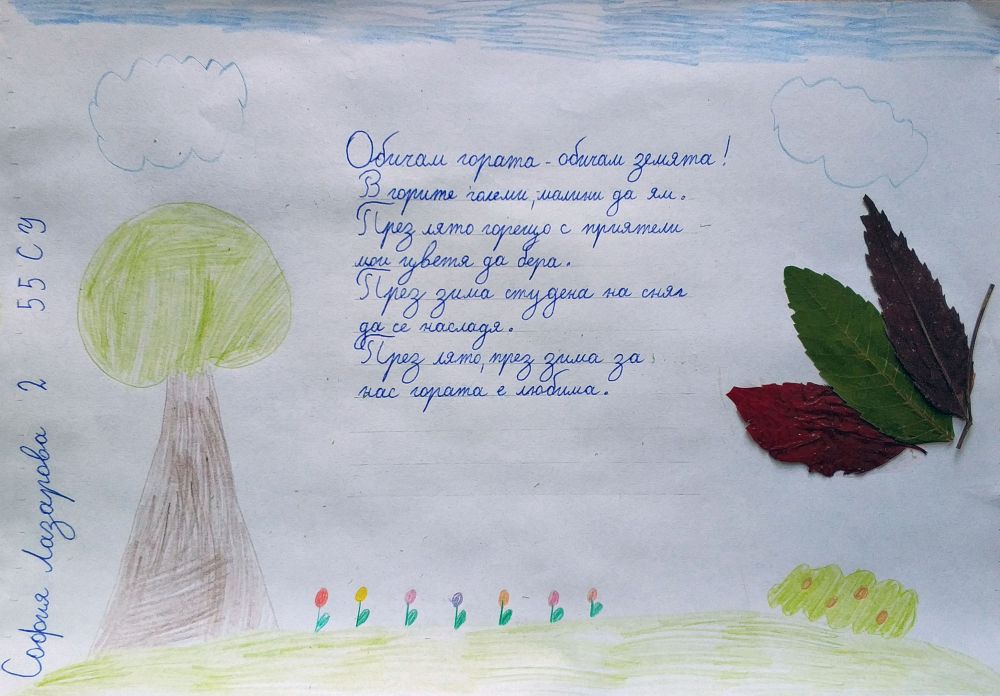 Обичам гората - обичам земята!
В горите големи, малини да ям.
През лято горещо с приятели -
мои цветя да бера.
През зима студена на сняг
да се насладя.
През лято, през зима за
нас гората е любима.
София Лазарова 2 55 СУ